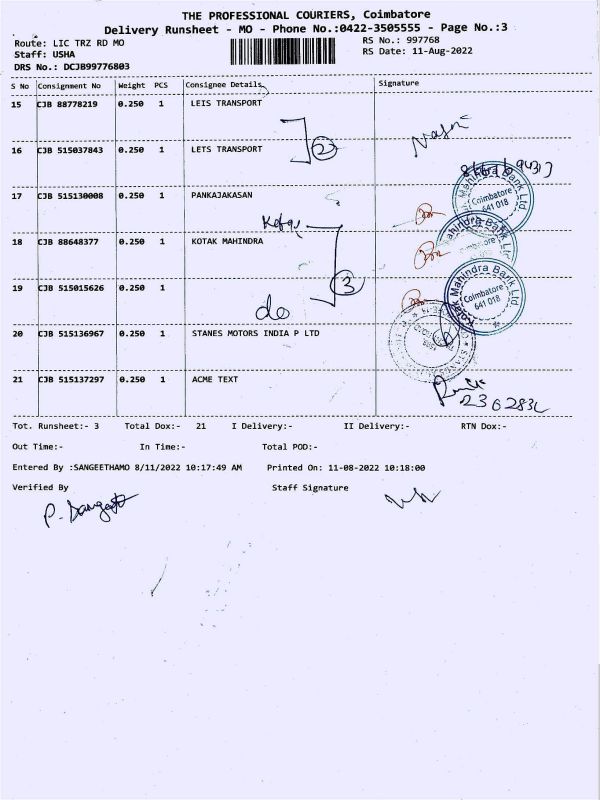 THE PROFESSIONAL COURIERS, Coimbatore
Delivery Runsheet - MO - Phone No.:0422-3505555 - Page No.:3
Route: LIC TRZ RD MO RS No.: 997768
Staff: USHA RS Date: 11-Aug-2022
DRS No.: DCJB99776803
S No Consignment No Weight PCS Consignee Details Signature
15 CJB 88778219 0.250 1 LEIS TRANSPORT
16 CJB 515037843 0.250 1 LETS TRANSPORT
2
17 CJB 515130008 0.250 1 PANKAJAKASAN
Mahindra Bank Ltd
Coimbatore
641 018
18 CJB 88648377 0.250 1 KOTAK MAHINDRA
Mahindra Bank
19 CJB 515015626 0.250 1
3
do
Kotak Mahindra Bank Ltd
Coimbatore
641 018
20 CJB 515136967 0.250 1 STANES MOTORS INDIA P LTD
21 CJB 515137297 0.250 1 ACME TEXT
Tot. Runsheet:- 3 Total Dox:- 21 I Delivery:- II Delivery:- RTN Dox:-
Out Time:- In Time:- Total POD:-
Entered By :SANGEETHAMO 8/11/2022 10:17:49 AM Printed On: 11-08-2022 10:18:00
Verified By Staff Signature
P. Sangeeta